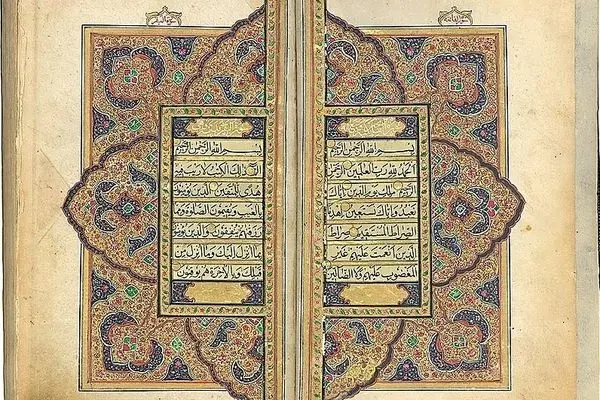 بسم الله الرحمن الرحيم
الحمد لله رب العالمين الرحمن
الرحيم ملك يوم الدين اياك
نعبد واياك نستعين اهدنا
الصراط المستقيم صراط
الذين انعمت عليهم غير
المغضوب عليهم ولا الضالين
بسم الله الرحمن الرحيم
الم ذلك الكتب لا ريب فيه
هدى للمتقين الذين يؤمنون
بالغيب ويقيمون الصلوة ومما
رزقنهم ينفقون والذين يؤمنون
بما انزل اليك وما انزل من
قبلك وبالاخرة هم يوقنون